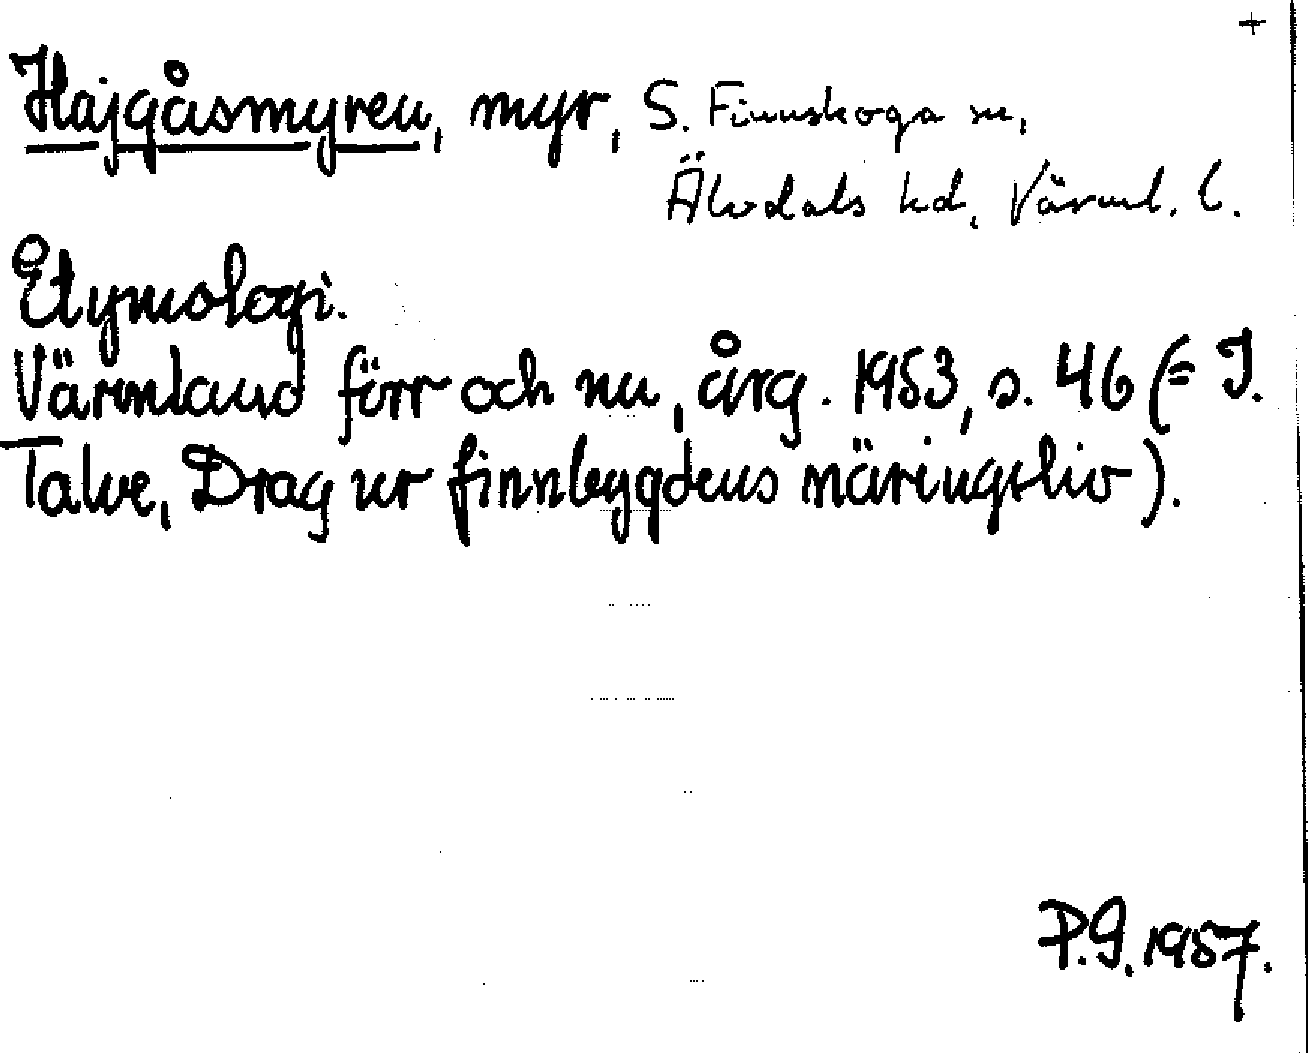 +
Hajgåsmyren, myr, S. Finnskoga sn,
Älvdals hd, Värml. l.
Etymologi.
Värmland förr och nu, årg. 1953, s. 46 (= I.
Talve, Drag ur finnbygdens näringsliv).
P.G. 1957.